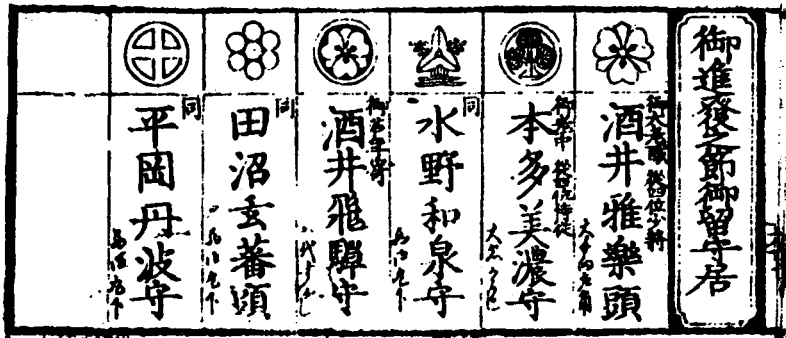 御進發之節御留守居
御大老職 從四位少將
酒井雅樂頭
御老中 從四位侍從
本多美濃守
同
水野和泉守
御若年寄
酒井飛驒守
同
田沼玄蕃頭
同
平岡丹波守